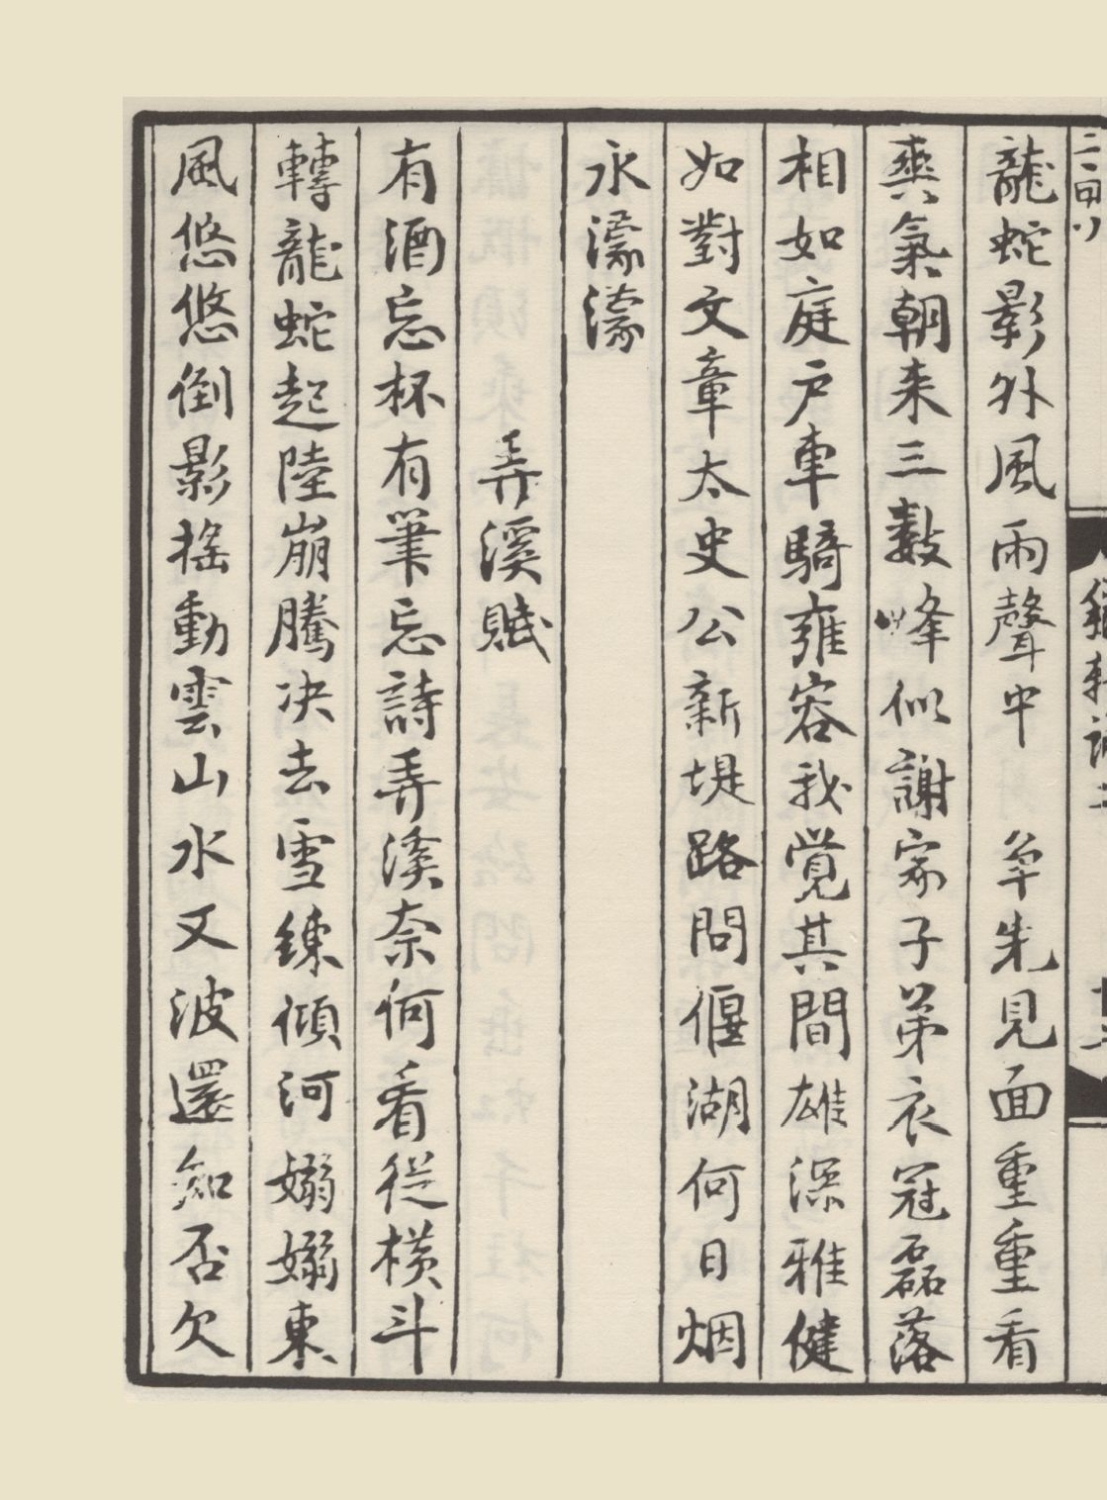 龍蛇影外風雨聲中 争先見面重重看
爽氣朝来三數峰似謝家子弟衣冠磊落
相如庭户車騎雍容我覺其間雄深雅健
如對文章太史公新堤路問偃湖何日烟
水濛濛
弄溪賦
有酒忘杯有筆忘詩弄溪奈何看從横斗
轉龍蛇起陸崩騰决去雪練傾河嫋嫋東
風悠悠倒影摇動雲山水又波還知否欠